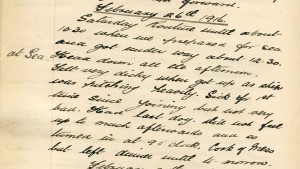 forward.
February 26th 1916.
Saturday Routine until about
10.30 when we prepared for sea
and got under way about 12.30.
at Sea. Head down all the afternoon.
Felt very dicky when got up as ship
was pitching heavily. Sick for 1st
time since joining but not very
bad. Head last day. Did not feel
up to much afterwards and so
turned in at 9 o'clock. Cook of Mess
but left dinner until to-morrow.
February